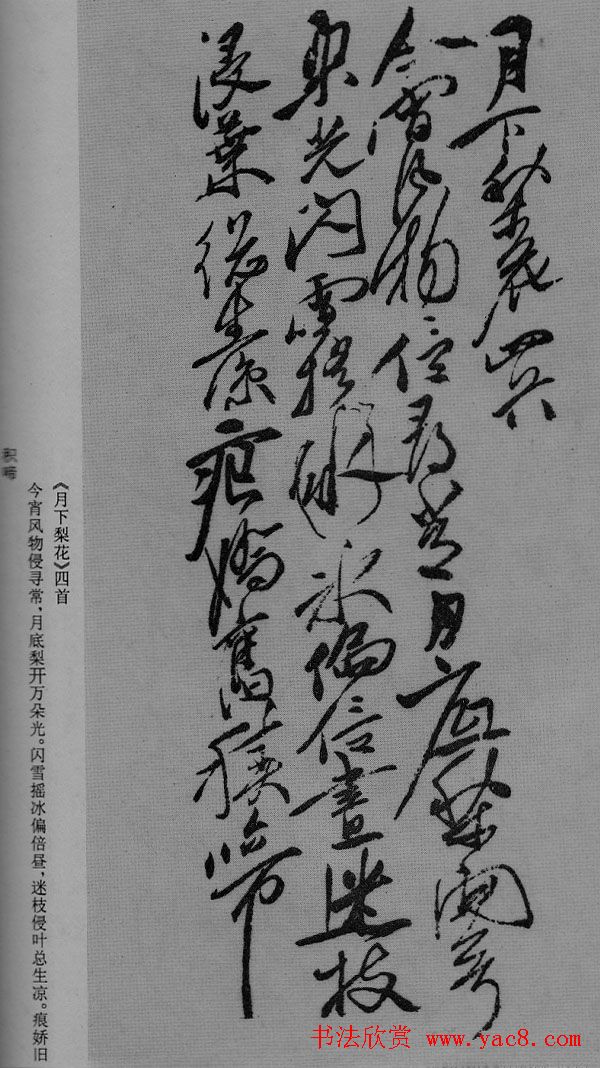 月下梨花四首
今宵风物侵尋常月底梨開万
朵光閃雪搖冰偏倍晝迷枝
浸葉總生凉痕嬌舊積啼
《月下梨花》四首
今宵风物侵寻常,月底梨开万朵光。闪雪摇冰偏倍昼,迷枝侵叶总生凉。痕娇旧
积啼
书法欣赏 www.yac8.com